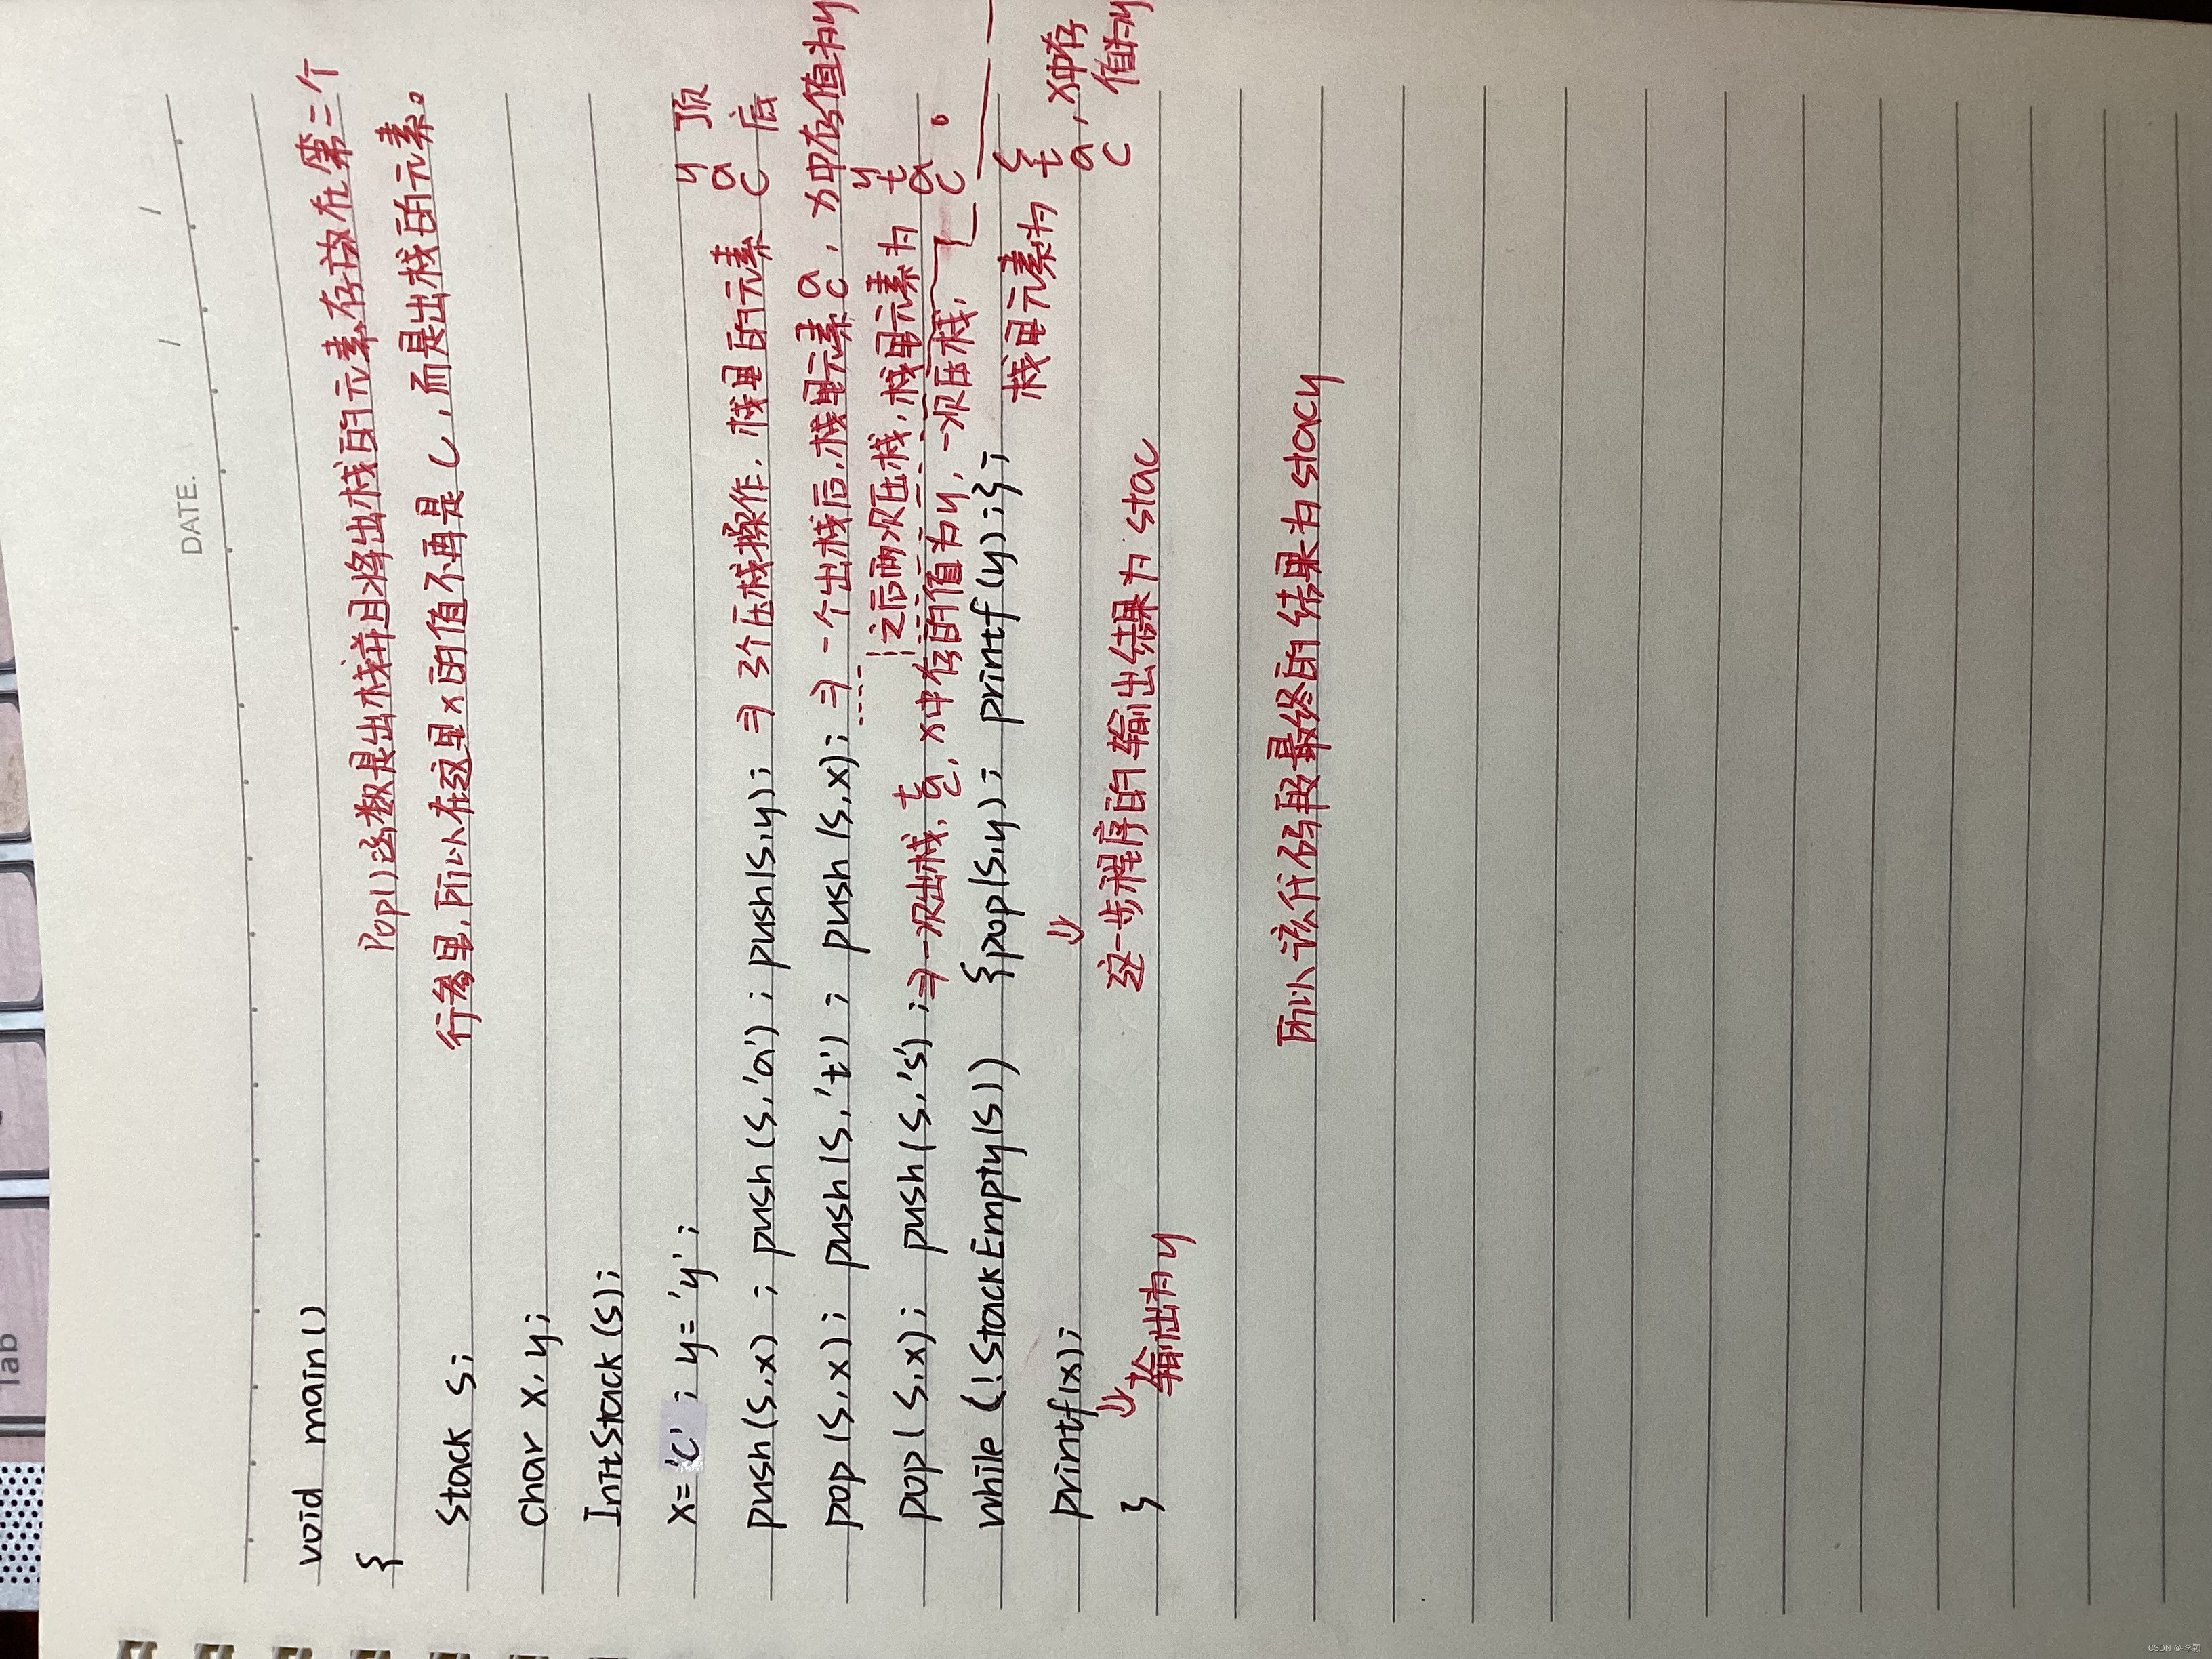 DATE.
void main()
{
Pop()函数是出栈并且将出栈的元素存放在第二个
行参里,所以在这里x的值不再是c,而是出栈的元素。
Stack S;
Char x,y;
InitStack(S);
x='c';y='y';
push(S,x);push(S,'a');push(S,y);⇒3个压栈操作.栈里的元素
y 顶
a
c 底
pop(S,x);push(S,'t');push(S,x);⇒一个出栈后,栈里元素 a c ,x中存值为y
之后两次压栈,栈里元素为
y
t
a
c
pop(S,x);push(S,'s');⇒一次出栈, t a c ,x中存的值为y,一次压栈,
while(!StackEmpty(S)) {pop(S,y);printf(y);};
栈里元素为
s
t
a
c
,x中存
值为y
printf(x);
⇓
这一步程序的输出结果为stac
}
⇓
输出为y
所以该代码段最终的结果为stacy
Tab
CSDN @-李颖